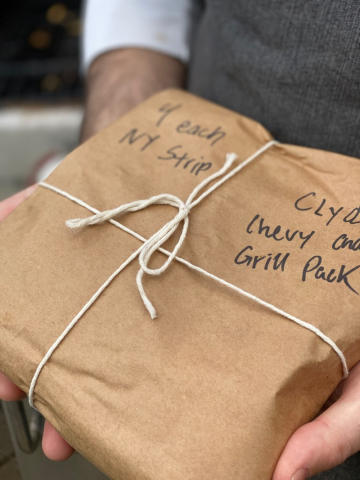 4 each
NY Strip
CLYD
Chevy and
Grill Pack